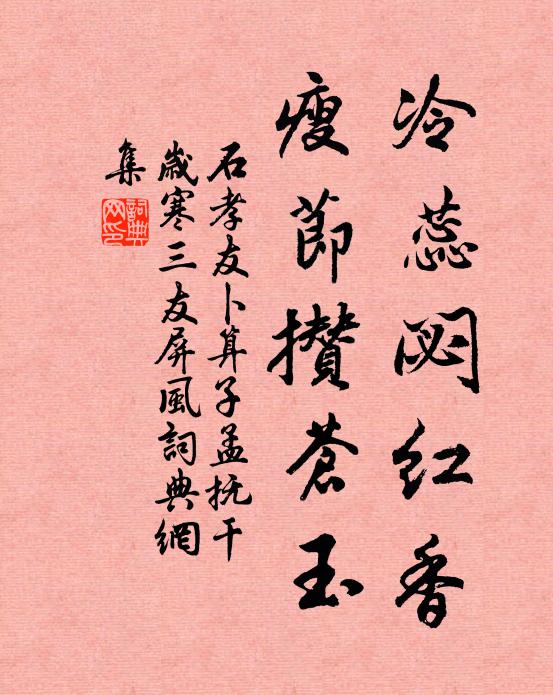 冷蕊閟紅香
瘦節攢蒼玉
石孝友卜算子孟抚干
歲寒三友屏風詞典網
集
詞典網印